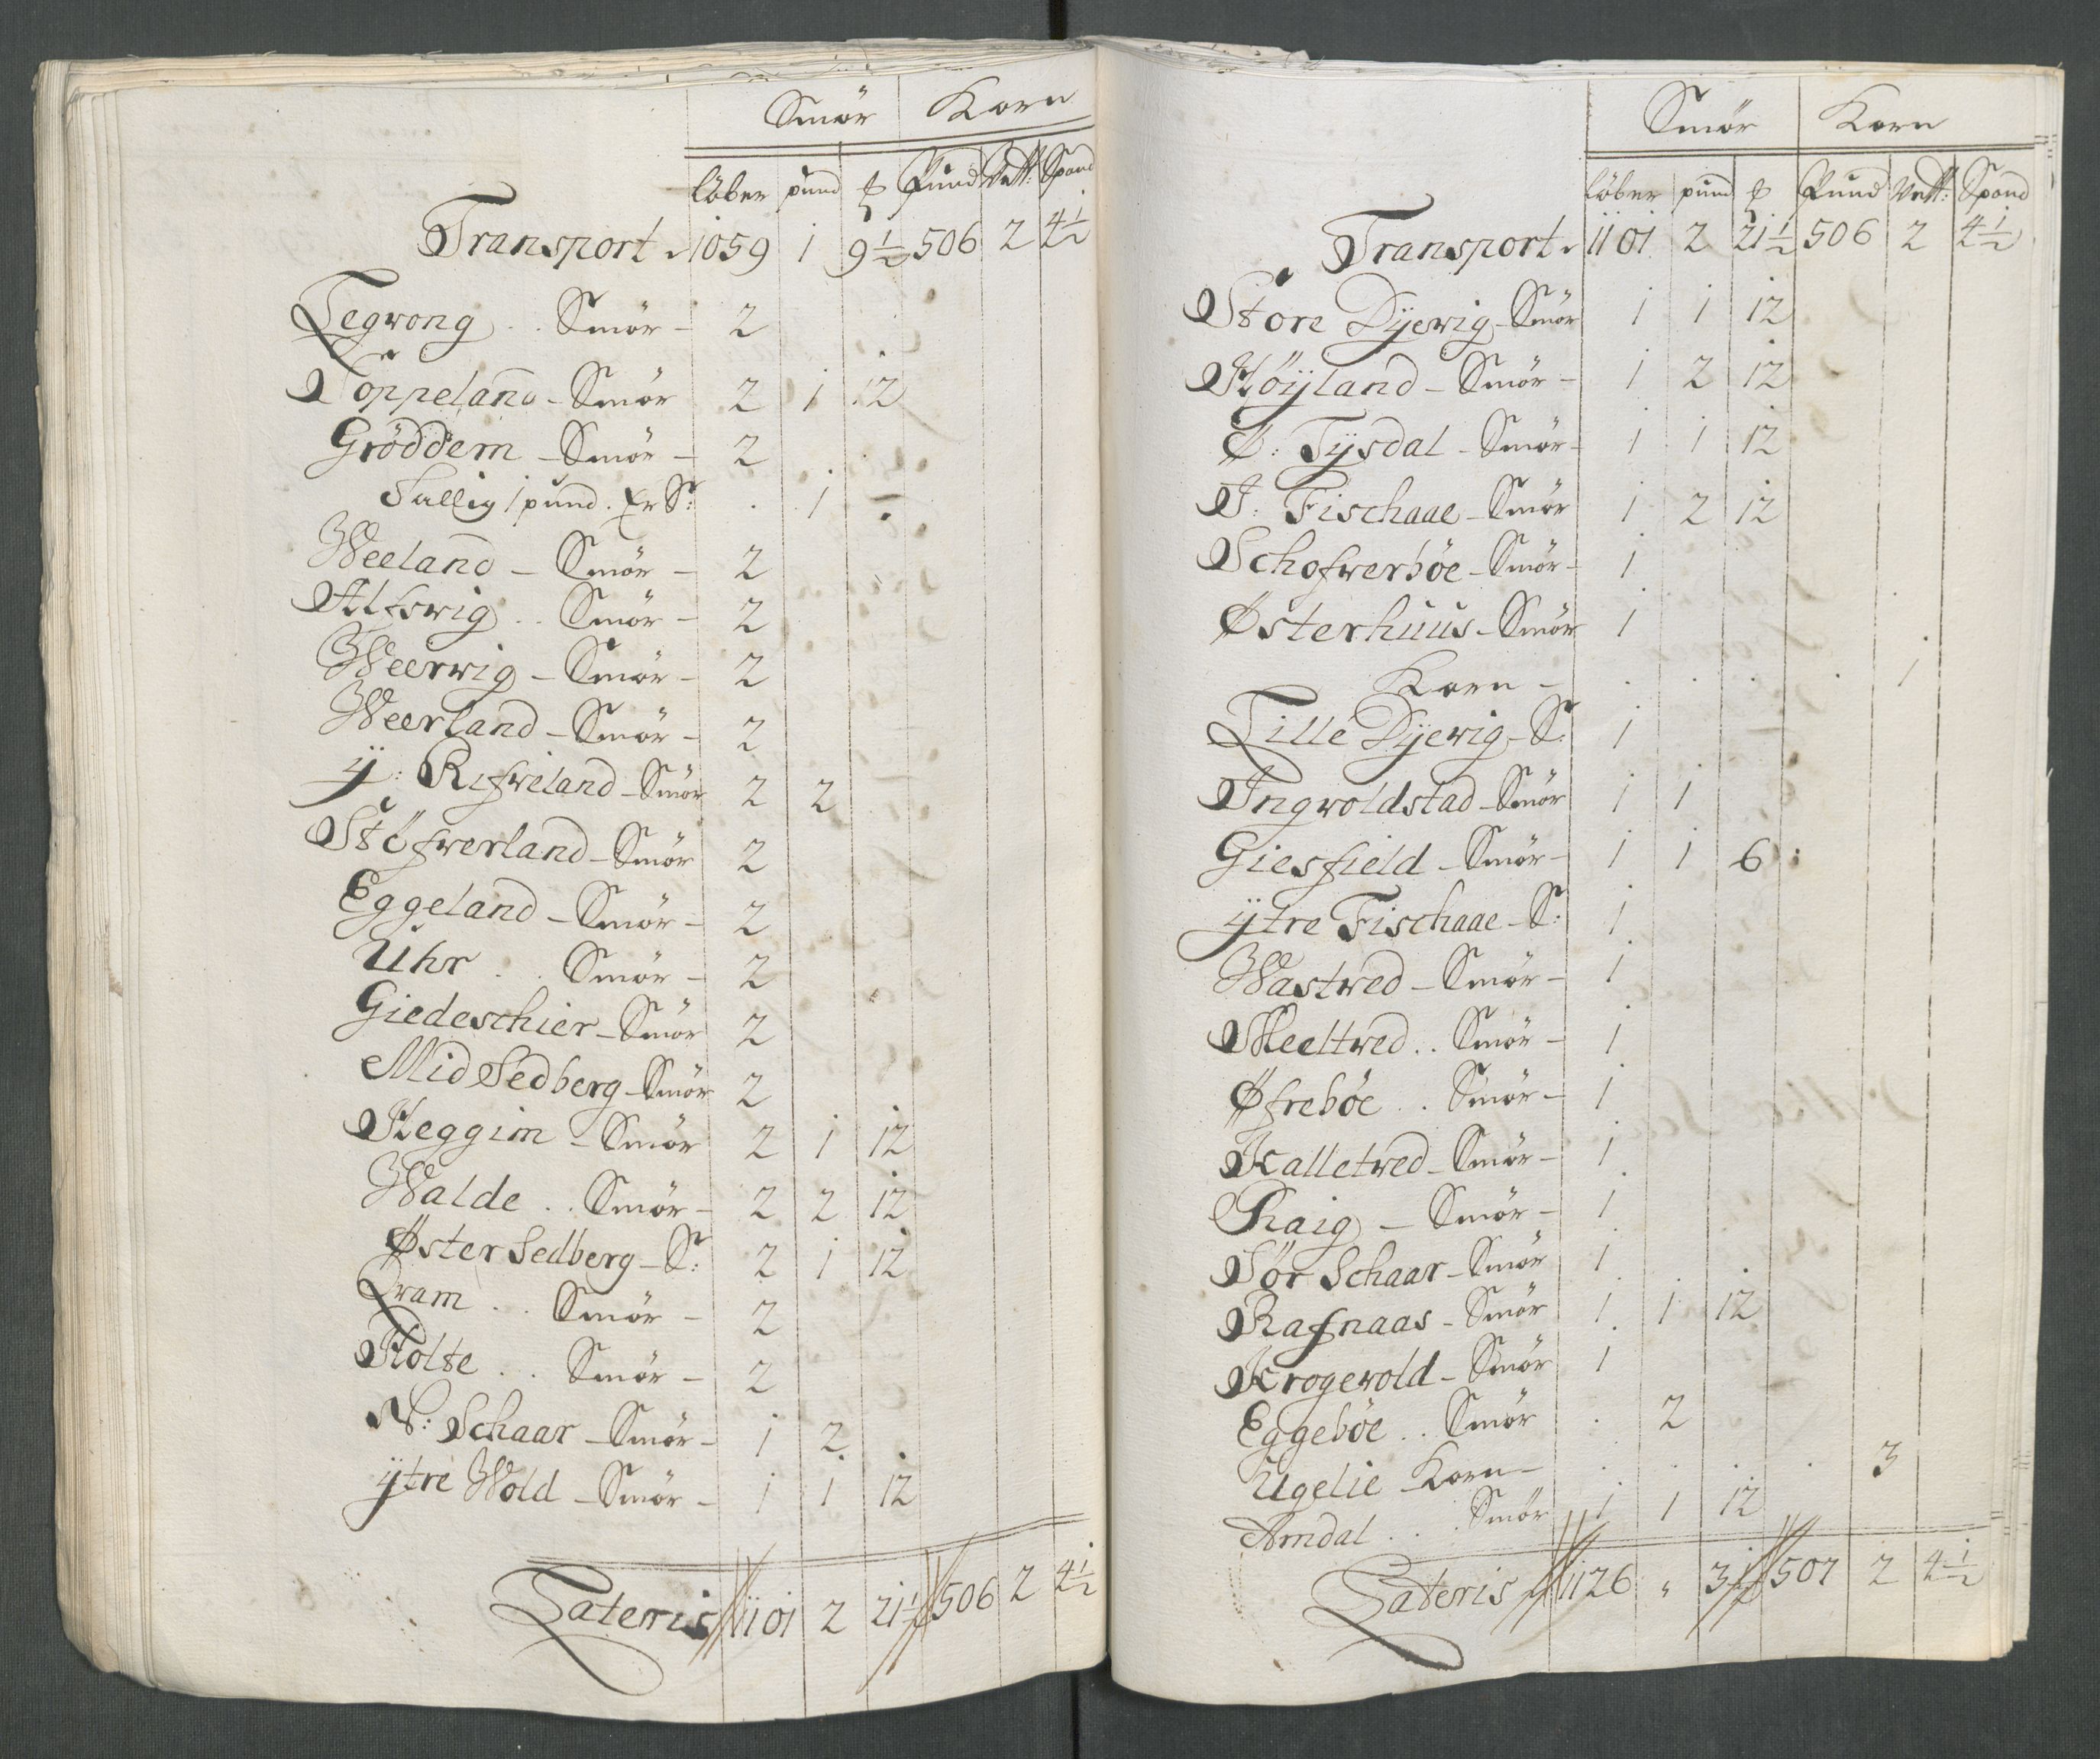 Smör Korn
löber pund ℔ Pund Vett: Spand
Transport 1059 1 9½ 506 2 4½
Tegwong .. Smör - 2
Töppeland - Smör 2 1 12
Gröddem - Smör - 2
Sallig 1 pund. Er S: . 1 -
Weeland - Smör - 2
Alfswig .. Smör - 2
Weerwig - Smör - 2
Weerland - Smör - 2
ÿ: Rifweland - Smör 2 2
Stöfwerland - Smör 2
Eggeland - Smör - 2
Uhr .. Smör - 2
Giedeschier - Smör 2
Mid Sedberg - Smör 2
Heggim - Smör 2 1 12
Walde .. Smör - 2 2 12
Øster Sedberg - S: 2 1 12
Qvam .. Smör - 2
Holte .. Smör - 2
N: Schaar - Smör - 1 2
ÿtre Wold - Smör - 1 1 12
Lateris 1101 2 21½ 506 2 4½
Smör Korn
löber pund ℔ Pund Vett: Spand
Transport 1101 2 21½ 506 2 4½
Store Dÿewig - Smör 1 1 12
Höÿland - Smör - 1 2 12
Ø: Tÿsdal - Smör - 1 1 12
J: Fischaae - Smör 1 2 12
Schofwerböe - Smör - 1
Østerhuus - Smör 1
Korn - . . . . 1
Lille Dÿewig - S: 1
Ingwoldstad - Smör 1 1
Giesfield - Smör - 1 1 6
ÿtre Fischaae - S: 1
Wastwed - Smör - 1
Meeltwed .. Smör - 1
Øfreböe .. Smör - 1
Kalletwed - Smör - 1
Raig - Smör - 1
Sör Schaar - Smör 1
Rafnaas - Smör 1 1 12
Krogewold - Smör 1
Eggeböe .. Smör . 2
Ugelie Korn - . . . . 3
Amdal .. Smör 1 1 12
Lateris 1126 " 3½ 507 2 4½